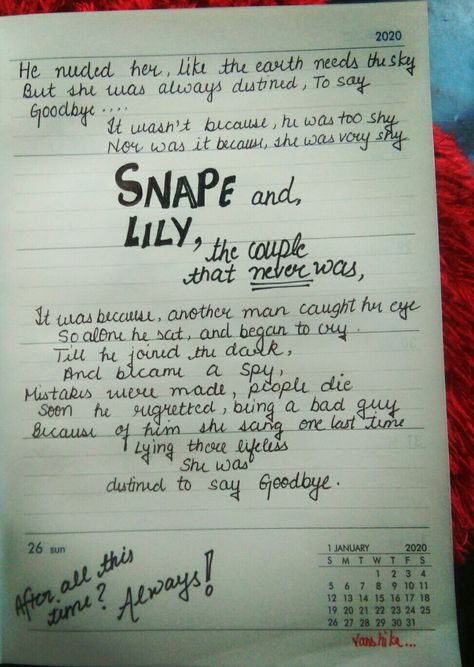 2020
He needed her, like the earth needs the sky
But she was always distined, To say
Goodbye....
It wasn't because, he was too shy
Nor was it because, she was very shy
SNAPE and,
LILY, the couple
that never was,
It was because, another man caught her eye
So alone he sat, and began to cry.
Till he joined the dark,
And became a spy,
Mistakes were made, people die
Soon he rugretted, being a bad guy
Because of him she sang one last time
Lying there lifeless
She was
distined to say Goodbye.
26 sun
After all this
time? Always!
1 JANUARY 2020
S M T W T F S
1 2 3 4
5 6 7 8 9 10 11
12 13 14 15 16 17 18
19 20 21 22 23 24 25
26 27 28 29 30 31
Vanshika...